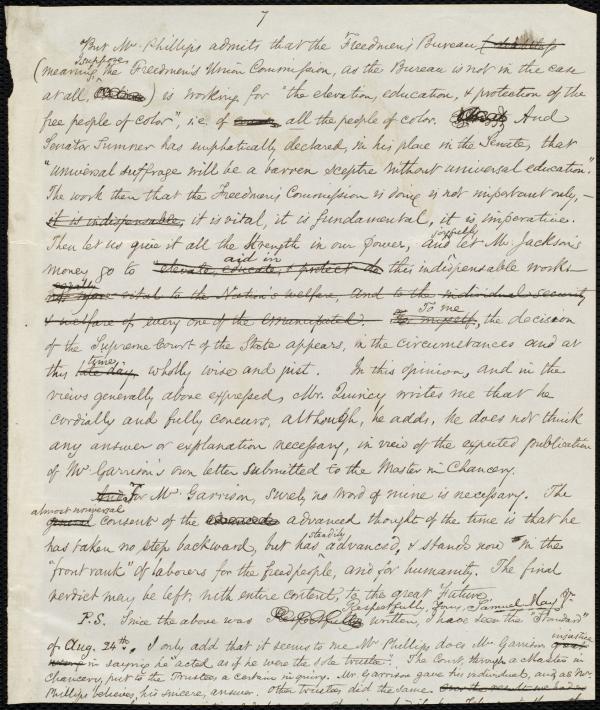 7
But Mr. Phillips admits that the Freedmen's Bureau
(meaning, I suppose, the Freedmen's Union Commission, as the Bureau is not in the case
at all,) is working for "the elevation, education, & protection of the
free people of color", i.e. of all the people of color. And
Senator Sumner has emphatically declared, in his place in the Senate, that
"universal suffrage will be a barren sceptre without universal education."
The work then that the Freedmen's Commission is doing is not important only, –
it is indispensable, it is vital, it is fundamental, it is imperative.
Then let us give it all the strength in our power, and joyfully let Mr. Jackson's
money go to aid in elevate, educate, & protect this indispensable work
vital to the Nation's welfare, and to the individual security
& welfare of every one of the emancipated. To myself, To me, the decision
of the Supreme Court of the State appears, in the circumstances and at
this late day, time, wholly wise and just. In this opinion, and in the
views generally above expressed, Mr. Quincy writes me that he
cordially and fully concurs, although, he adds, he does not think
any answer or explanation necessary, in view of the expected publication
of Mr. Garrison's own letter submitted to the Master in Chancery.
And For Mr. Garrison, surely no word of mine is necessary. The
almost universal general consent of the advanced thought of the time is that he
has taken no step backward, but has steadily advanced, & stands now in the
"front rank" of laborers for the freedpeople, and for humanity. The final
verdict may be left, with entire content, to the great Future.
Respectfully, Yours, Samuel May, Jr.
P.S. Since the above was written, I have seen the "Standard"
of Aug. 24th. I only add that it seems to me Mr. Phillips does Mr. Garrison injustice
in saying he "acted as if he were the sole trustee." The Court, through a Master in
Chancery, put to the Trustees a certain inquiry. Mr. Garrison gave his individual, and, as Mr.
Phillips believes, his sincere, answer. Other trustees did the same.